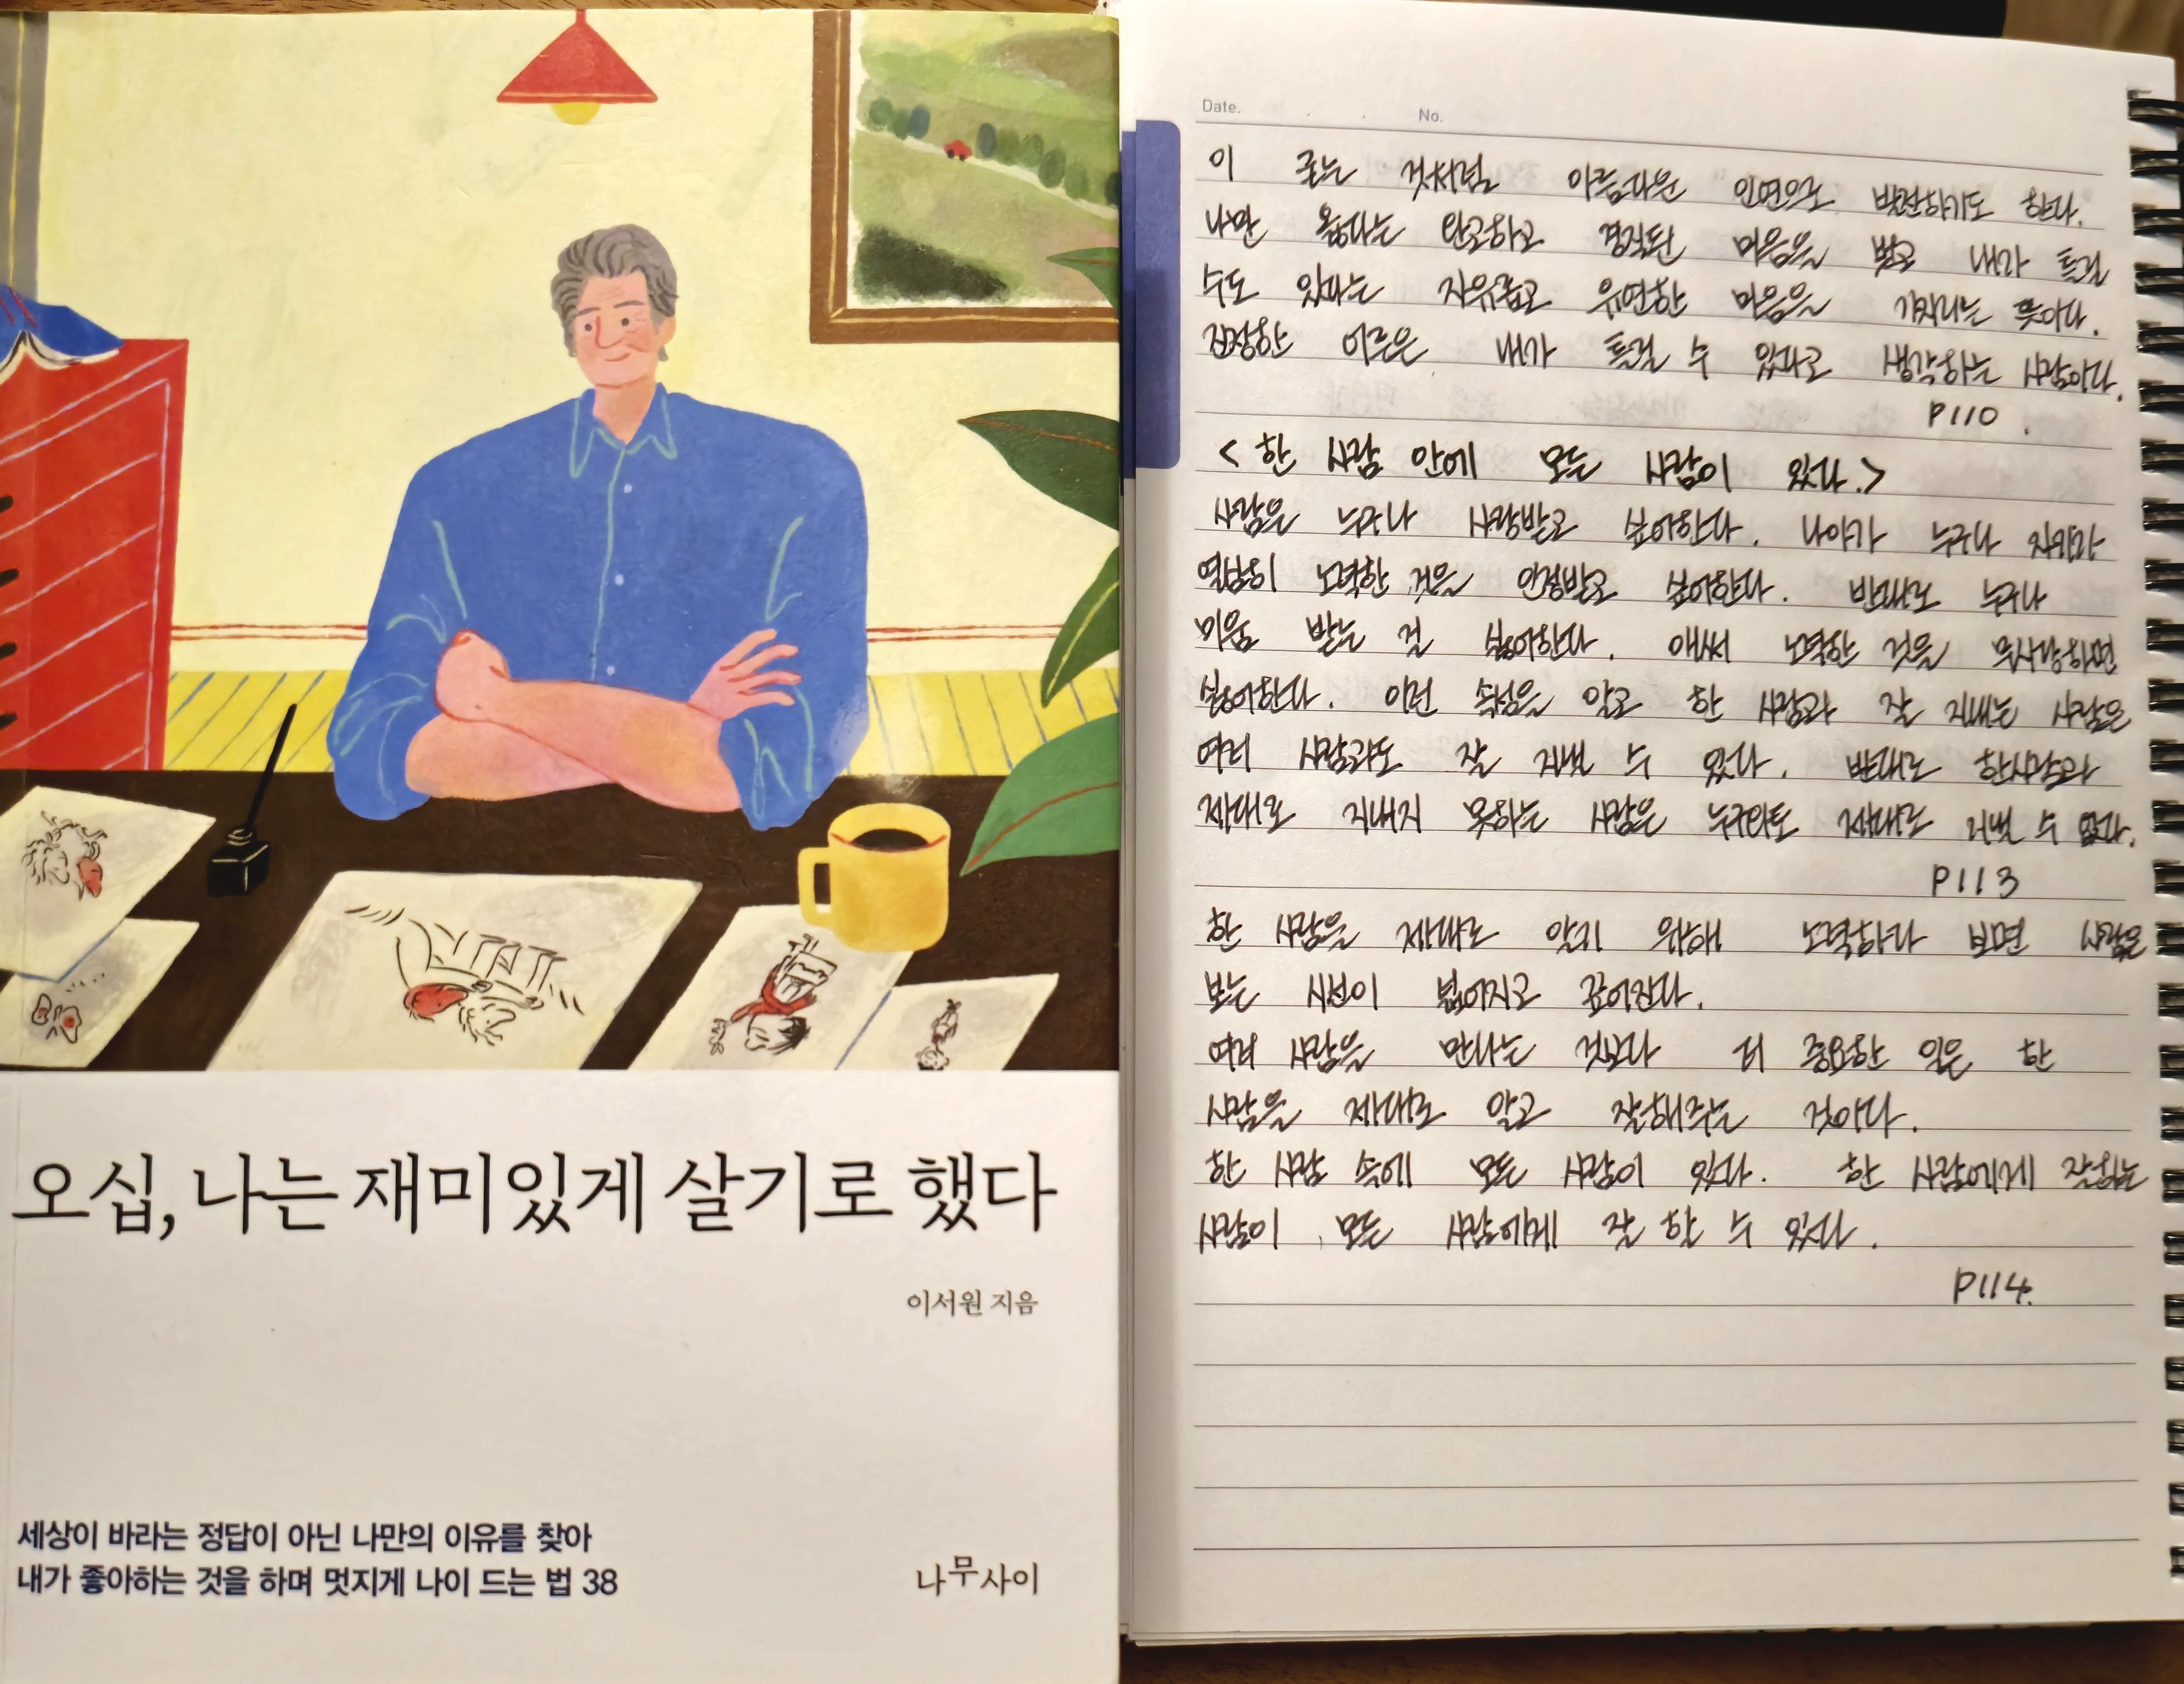 오십, 나는 재미있게 살기로 했다
이서원 지음
세상이 바라는 정답이 아닌 나만의 이유를 찾아
내가 좋아하는 것을 하며 멋지게 나이 드는 법 38
나무사이
Date. No.
이 굳는 것처럼 아름다운 인연으로 발전하기도 한다.
나만 옳다는 완고하고 경직된 마음을 벗고 내가 틀릴
수도 있다는 자유롭고 유연한 마음을 가지라는 뜻이다.
진정한 어른은 내가 틀릴 수 있다고 생각하는 사람이다.
P110.
<한 사람 안에 모든 사람이 있다.>
사람은 누구나 사랑받고 싶어한다. 나아가 누구나 자기가
열심히 노력한 것은 인정받고 싶어한다. 반대로 누구나
미움 받는 걸 싫어한다. 애써 노력한 것을 무시당하면
싫어한다. 이런 속성을 알고 한 사람과 잘 지내는 사람은
여러 사람과도 잘 지낼 수 있다. 반대로 한사람과
제대로 지내지 못하는 사람은 누구와도 제대로 지낼 수 없다.
P113
한 사람을 제대로 알기 위해 노력하다 보면 사람을
보는 시선이 넓어지고 깊어진다.
여러 사람을 만나는 것보다 더 중요한 일은 한
사람을 제대로 알고 잘해주는 것이다.
한 사람 속에 모든 사람이 있다. 한 사람에게 잘하는
사람이 모든 사람에게 잘 할 수 있다.
P114.